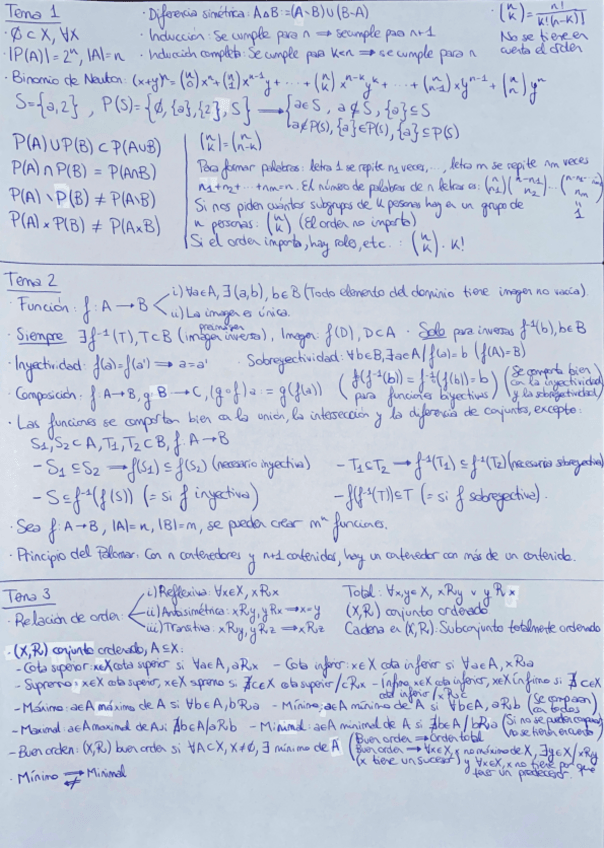 Tema 1
· Diferencia simétrica: A△B := (A∖B)∪(B∖A)
· (n k) = n! / k!(n-k)!
No se tiene en cuenta el orden
· ∅ ⊂ X, ∀X
· Inducción: Se cumple para n ⟹ se cumple para n+1
· |P(A)| = 2ⁿ, |A| = n
· Inducción completa: Se cumple para k<n ⟹ se cumple para n
· Binomio de Newton: (x+y)ⁿ = (n 0)xⁿ + (n 1)xⁿ⁻¹y + ... + (n k)xⁿ⁻ᵏyᵏ + ... + (n n-1)xyⁿ⁻¹ + (n n)yⁿ
S = {a,2}, P(S) = {∅, {a}, {2}, S} ⟶ { a∈S, a⊄S, {a}⊆S
a∉P(S), {a}∈P(S), {a}⊆P(S)
P(A) ∪ P(B) ⊂ P(A∪B)
P(A) ∩ P(B) = P(A∩B)
P(A) ∖ P(B) ≠ P(A∖B)
P(A) × P(B) ≠ P(A×B)
(n k) = (n n-k)
Para formar palabras: letra 1 se repite n₁ veces, ..., letra m se repite nm veces
n₁+n₂+...+nm = n. El número de palabras de n letras es: (n n₁)(n-n₁ n₂)...
Si nos piden cuántos subgrupos de k personas hay en un grupo de
n personas: (n k) (El orden no importa)
Si el orden importa, hay roles, etc.: (n k) · k!
Tema 2
· Función: f: A → B
i) ∀a∈A, ∃(a,b), b∈B (Todo elemento del dominio tiene imagen no vacía)
ii) La imagen es única.
· Siempre ∃f⁻¹(T), T⊂B (imagen inversa), Imagen: f(D), D⊂A · Solo para inversas f⁻¹(b), b∈B
· Inyectividad: f(a)=f(a') ⟹ a=a'
· Sobreyectividad: ∀b∈B, ∃a∈A / f(a)=b (f(A)=B)
· Composición: f: A→B, g: B→C, (g∘f)a := g(f(a))
(f(f⁻¹(b)) = f⁻¹(f(b)) = b para funciones biyectivas)
(Se comporta bien con la inyectividad y la sobreyectividad)
· Las funciones se comportan bien con la unión, la intersección y la diferencia de conjuntos, excepto:
S₁,S₂ ⊂ A, T₁,T₂ ⊂ B, f: A→B
- S₁ ⊆ S₂ ⟶ f(S₁) ⊆ f(S₂) (necesario inyectiva)
- T₁ ⊆ T₂ ⟶ f⁻¹(T₁) ⊆ f⁻¹(T₂) (necesaria sobreyectiva)
- S ⊆ f⁻¹(f(S)) (= si f inyectiva)
- f(f⁻¹(T)) ⊆ T (= si f sobreyectiva).
· Sea f: A→B, |A|=n, |B|=m, se pueden crear mⁿ funciones.
· Principio del Palomar: Con n contenedores y n+1 contenidos, hay un contenedor con más de un contenido.
Tema 3
· Relación de orden:
i) Reflexiva: ∀x∈X, xRx
ii) Antisimétrica: xRy, yRx ⟶ x=y
iii) Transitiva: xRy, yRz ⟶ xRz
Total: ∀x,y∈X, xRy ∨ yRx
(X,R) conjunto ordenado
Cadena en (X,R): Subconjunto totalmente ordenado
· (X,R) conjunto ordenado, A⊆X:
- Cota superior: x∈X cota superior si ∀a∈A, aRx
- Cota inferior: x∈X cota inferior si ∀a∈A, xRa
- Supremo: x∈X cota superior, x∈X supremo si ∄c∈X cota superior / cRx
- Ínfimo: x∈X cota inferior, x∈X ínfimo si ∄c∈X cota inferior / xRc
- Máximo: a∈A máximo de A si ∀b∈A, bRa
- Mínimo: a∈A mínimo de A si ∀b∈A, aRb (Se comparan con todos)
- Maximal: a∈A maximal de A si ∄b∈A / aRb
- Minimal: a∈A minimal de A si ∄b∈A / bRa (Si no se pueden comparar no se tienen en cuenta)
- Buen orden: (X,R) buen orden si ∀A⊂X, x≠∅, ∃ mínimo de A
(Buen orden ⟶ Orden total
Buen orden ⟶ ∀x∈X, x no máximo de X, ∃y∈X / xRy
(x tiene un sucesor) y ∀x∈X, x no tiene por qué
tener un predecesor.
· Mínimo ⟹ Minimal